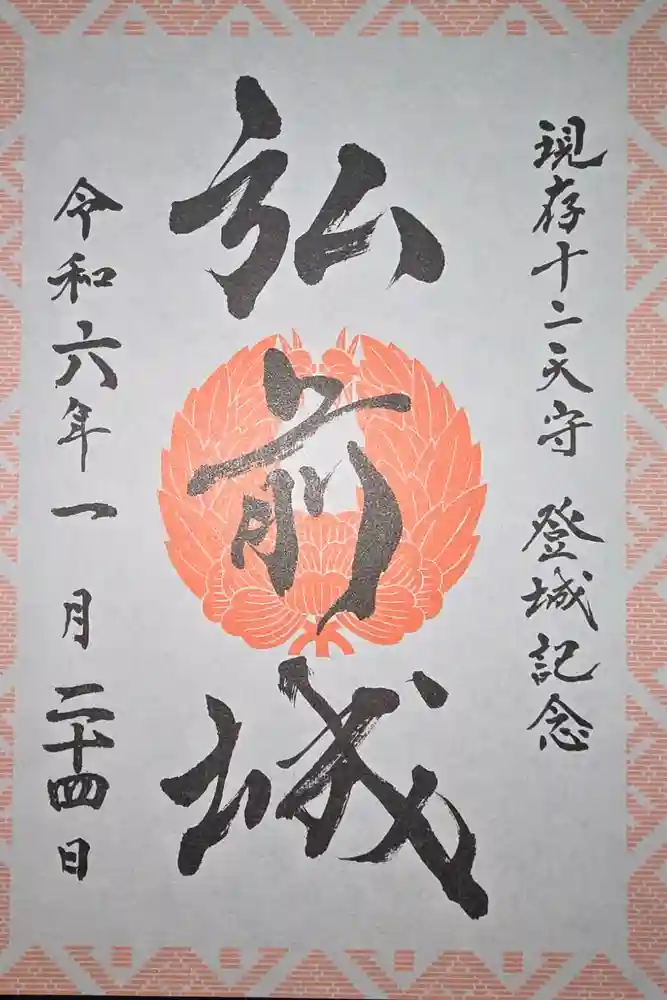 現存十二天守 登城記念
弘前城
令和六年一月二十四日